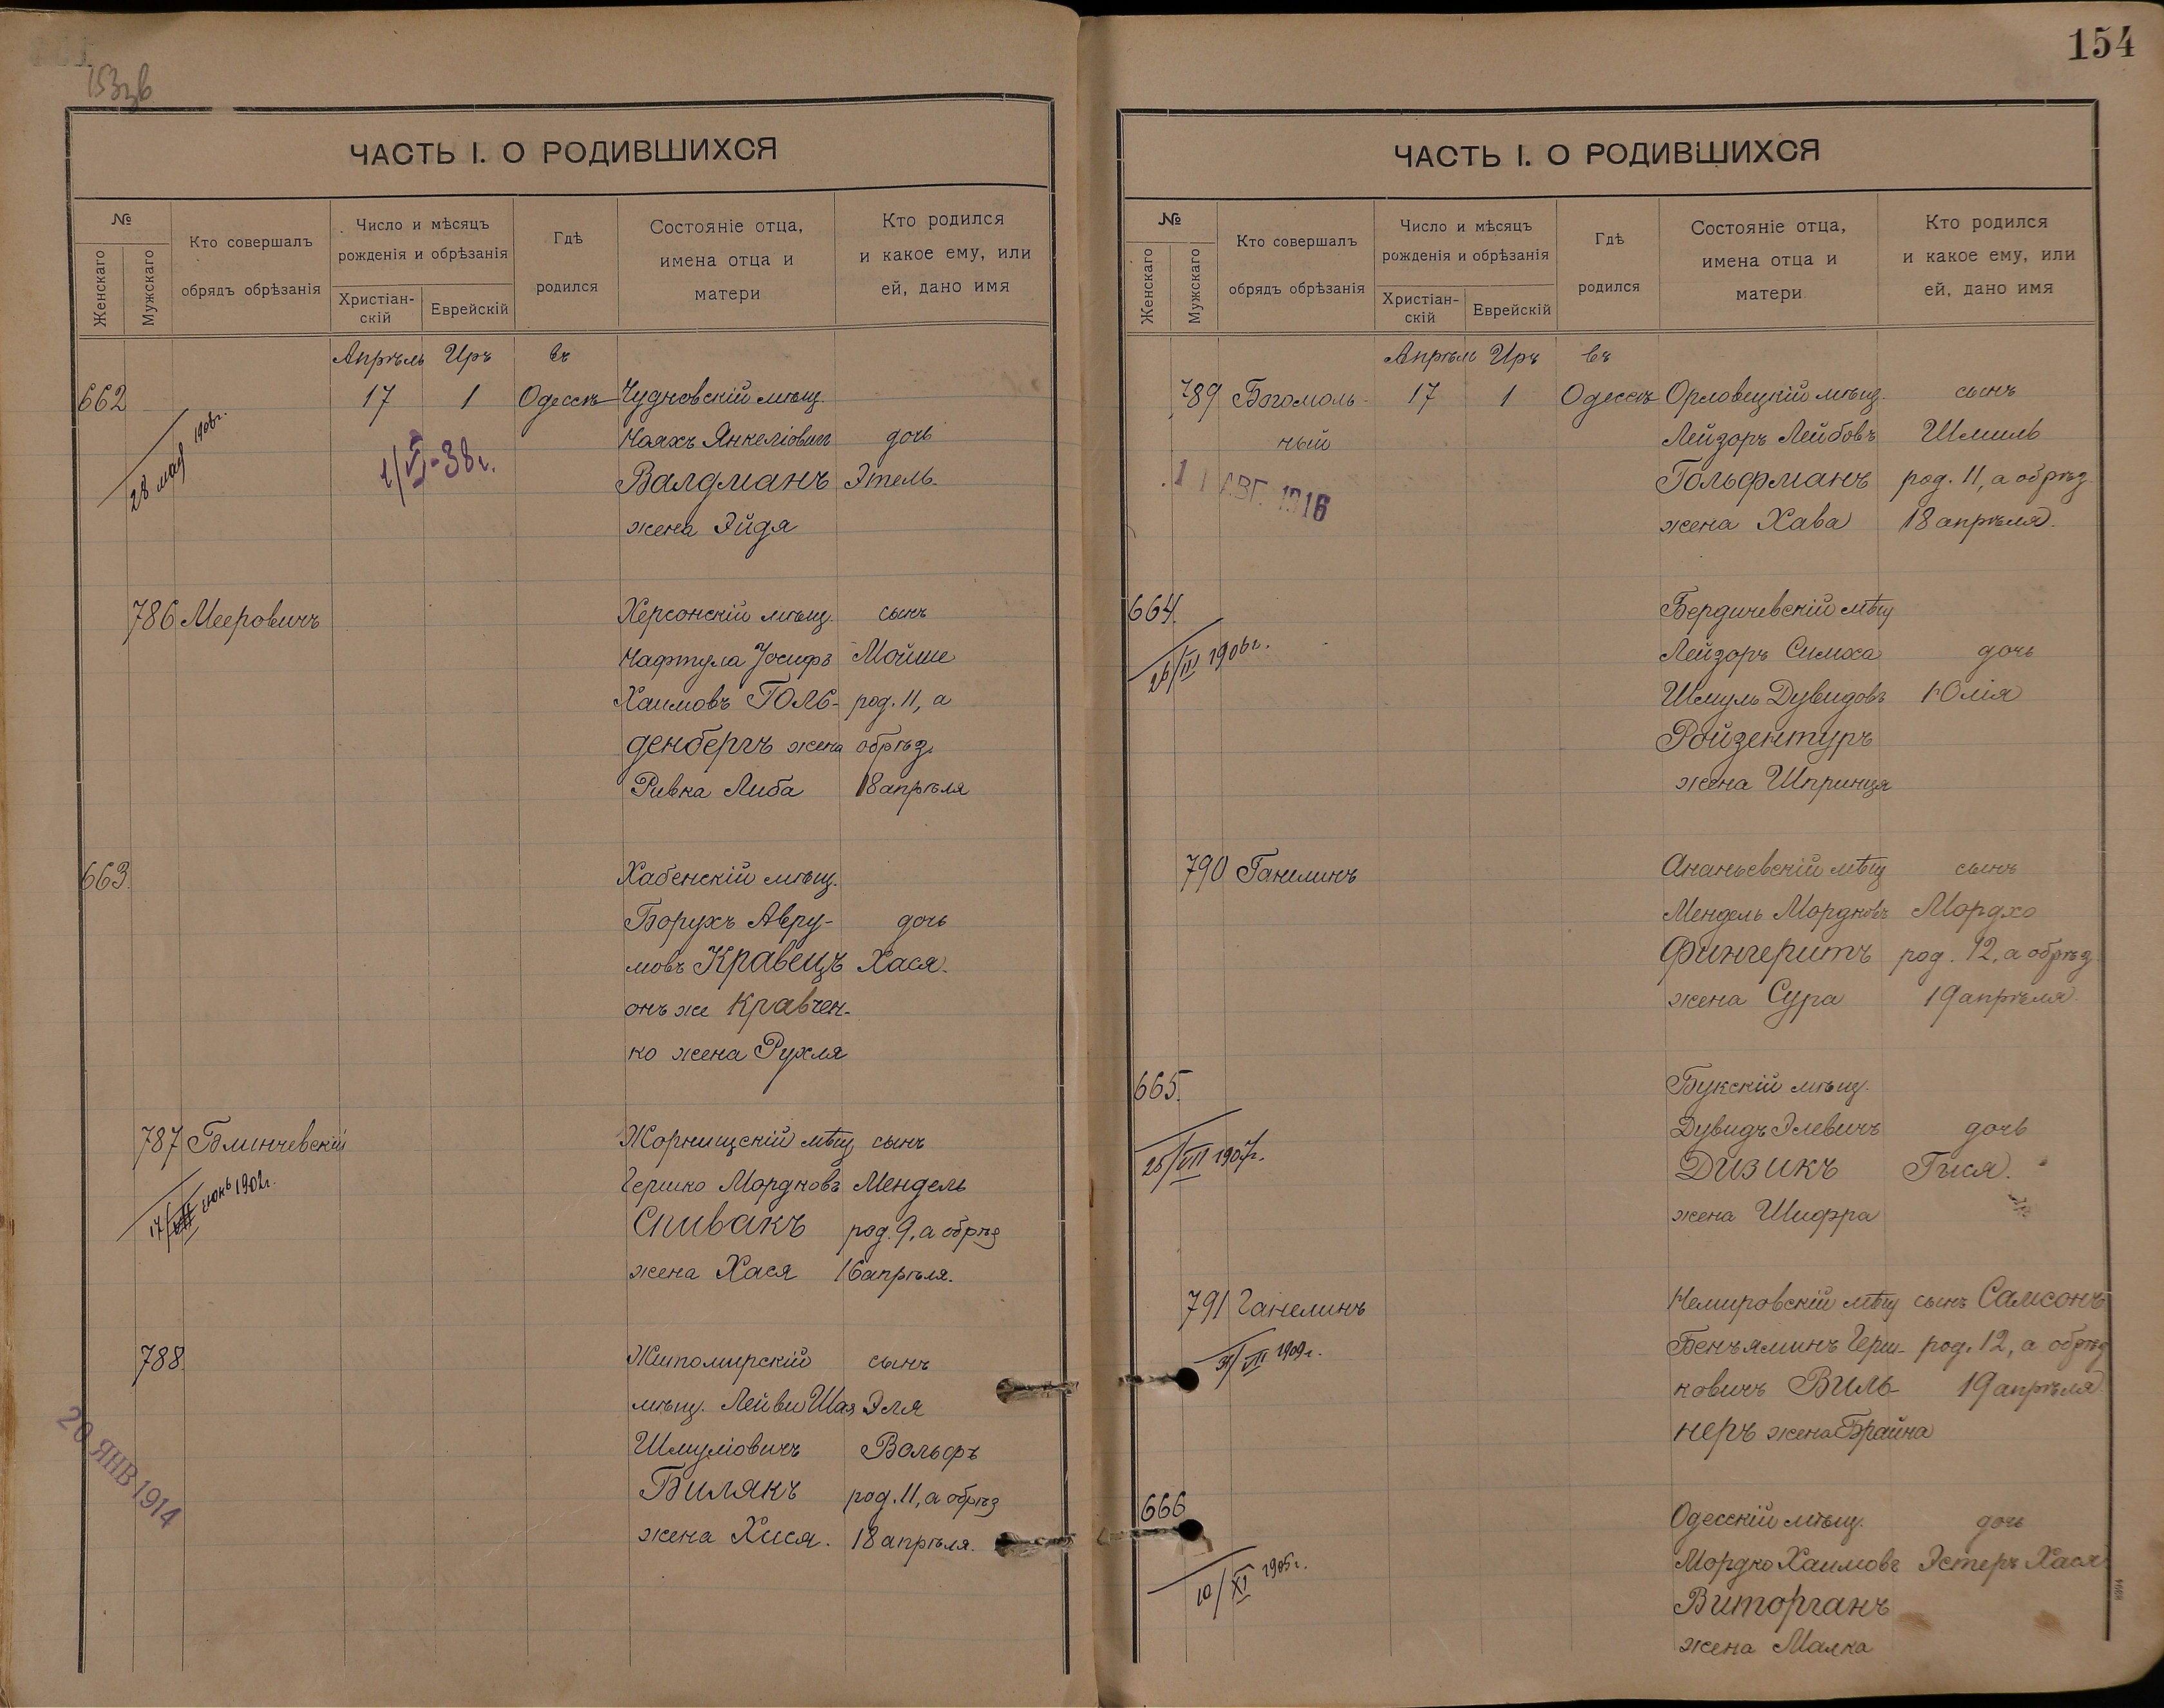 153зв
ЧАСТЬ I. О РОДИВШИХСЯ
№
Женскаго
Мужскаго
Кто совершалъ
обрядъ обрѣзанія
Число и мѣсяцъ
рожденія и обрѣзанія
Христіан-
скій
Еврейскій
Гдѣ
родился
Состояніе отца,
имена отца и
матери
Кто родился
и какое ему, или
ей, дано имя
Апрѣль Иръ въ
662 17 1 Одессѣ Чудновскій мѣщ.
28 мая 1908г.
1/VI-38г.
Нояхъ Янкеліовичъ дочь
Валдманъ Этель.
жена Эйдя
786 Мееровичъ Херсонскій мѣщ. сынъ
Нафтула Іосифъ Мойше
Хаимовъ Голь- род. 11, а
денбергъ жена обрѣз.
Ривка Либа 18 апрѣля
663. Хабенскій мѣщ.
Борухъ Авру- дочь
мовъ Кравецъ Хася.
онъ же Кравчен-
ко жена Рухля
787 Блинчевскій Жорнищскій мѣщ сынъ
17/ июнь 1902г.
Гершко Мордковъ Мендель
Спивакъ род. 9, а обрѣз
жена Хася 16 апрѣля.
788. Житомирскій сынъ
мѣщ. Лейви Шая Эля
Шмуліовичъ Вольфъ
20 ЯНВ 1914
Билякъ род. 11, а обрѣз
жена Хися. 18 апрѣля.
154
ЧАСТЬ I. О РОДИВШИХСЯ
№
Женскаго
Мужскаго
Кто совершалъ
обрядъ обрѣзанія
Число и мѣсяцъ
рожденія и обрѣзанія
Христіан-
скій
Еврейскій
Гдѣ
родился
Состояніе отца,
имена отца и
матери
Кто родился
и какое ему, или
ей, дано имя
Апрѣль Иръ въ
789 Богомоль- 17 1 Одессѣ Орловецкій мѣщ. сынъ
ный Лейзоръ Лейбовъ Шмиль
11 АВГ. 1916
Гольфманъ род. 11, а обрѣз.
жена Хава 18 апрѣля.
664. Бердичевскій мѣщ
26/III 1906г.
Лейзоръ Симха дочь
Шмуль Дувидовъ Юлія
Ройзентуръ
жена Шпринця
790 Ганелинъ Ананьевскій мѣщ сынъ
Мендель Мордковъ Мордхо
Фингеритъ род. 12, а обрѣз.
жена Сура 19 апрѣля.
665. Букскій мѣщ.
Дувидъ Элевичъ дочь
25/VIII 1907г.
Дизикъ Гися.
жена Шифра
791 Ганелинъ Немировскій мѣщ сынъ Самсонъ
31/VII 1909г.
Беньяминъ Герш- род. 12, а обрѣз
ковичъ Виль- 19 апрѣля
неръ жена Брайна
666 Одесскій мѣщ. дочь
10/XI 1905г.
Мордко Хаимовъ Эстеръ Хася
Виторганъ
жена Малка